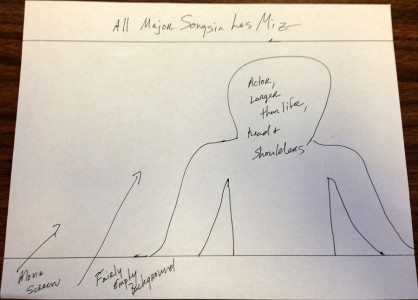 All Major Songs in Les Miz
Actor,
Larger
than life,
head +
shoulders
Movie
Screen
Fairly
Empty
Background